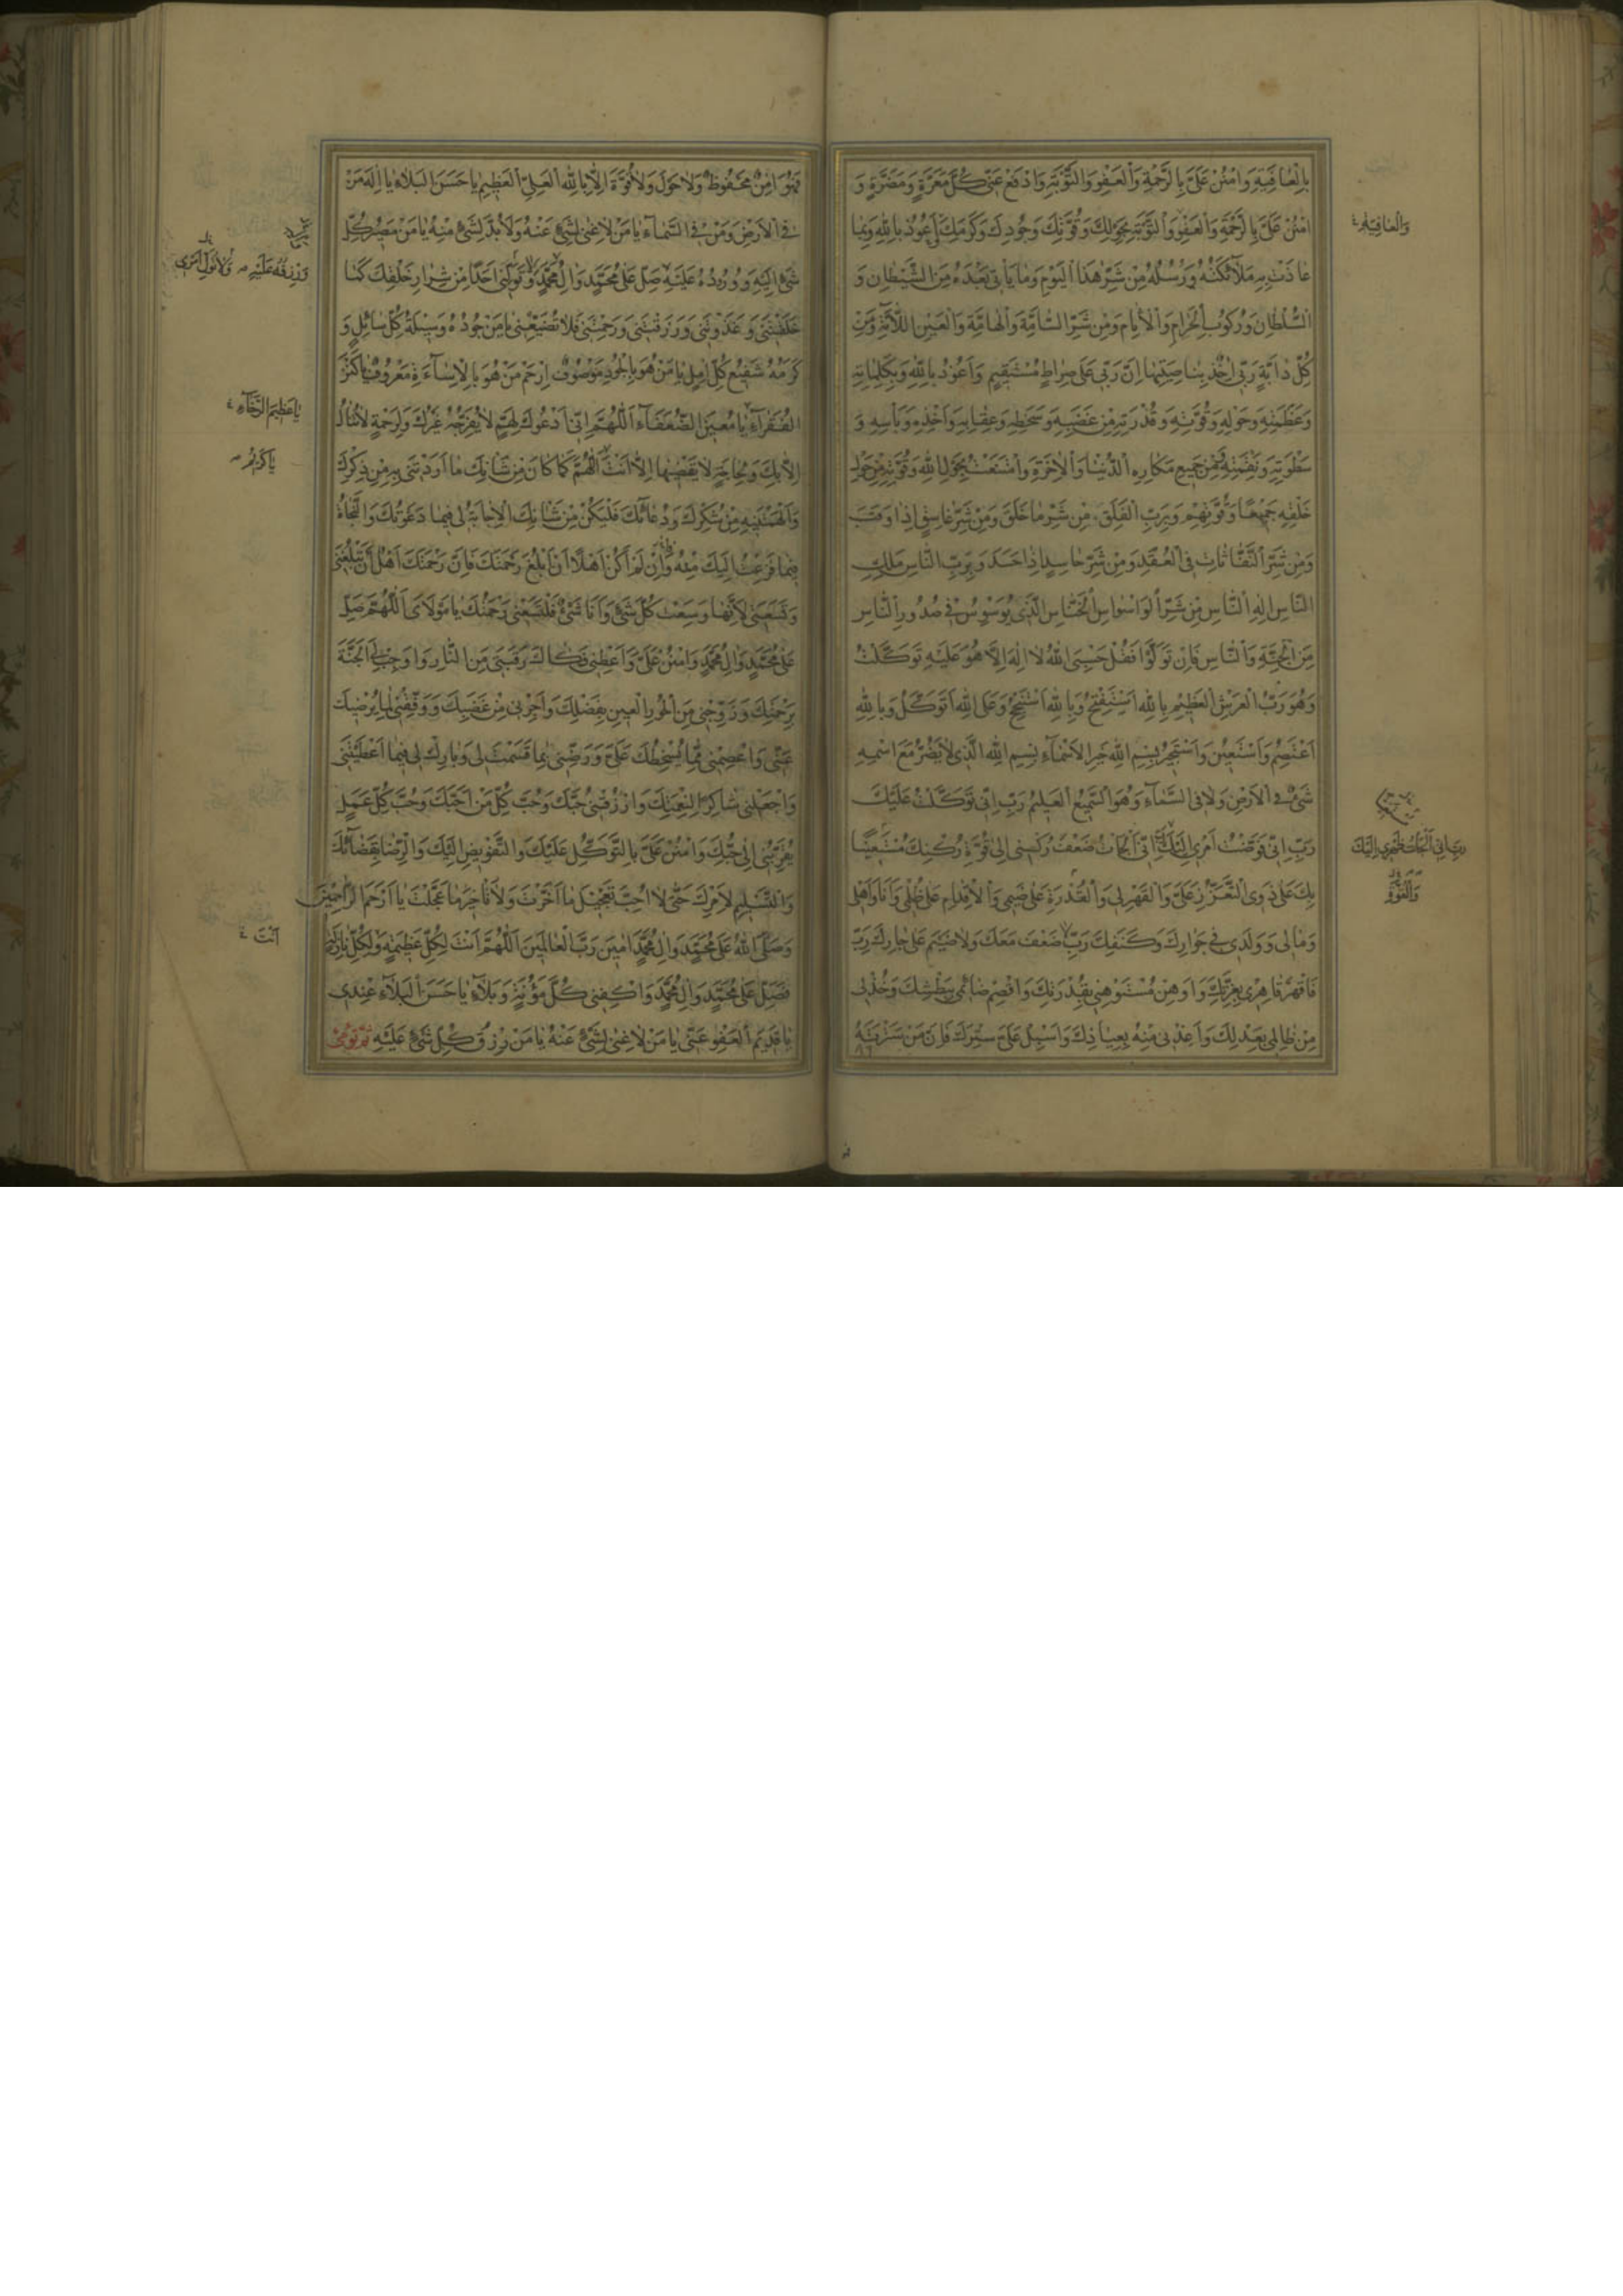 بِالْعٰافِيَةِ وَامْنُنْ عَلَىَّ بِالرَّحْمَةِ وَالْعَفْوِ وَالتَّوْبَةِ وَادْفَعْ عَنّى كُلَّ مَعَرَّةٍ وَمَضَرَّةٍ وَ
امْنُنْ عَلَىَّ بِالرَّحْمَةِ وَالْعَفْوِ وَالتَّوْبَةِ بِحَوْلِكَ وَقُوَّتِكَ وَجُودِكَ وَكَرَمِكَ اَعُوذُ بِاللهِ وَبِمٰا
عٰاذَتْ بِهِ مَلٰآئِكَتُهُ وَرُسُلُهُ مِنْ شَرِّ هٰذَا الْيَوْمِ وَمٰا يَأْتى بَعْدَهُ مِنَ الشَّيْطٰانِ وَ
السُّلْطٰانِ وَرُكُوبِ الْحَرٰامِ وَالْاٰثٰامِ وَمِنْ شَرِّ السّٰامَّةِ وَالْهٰامَّةِ وَالْعَيْنِ اللّٰامَّةِ وَمِنْ
كُلِّ دٰابَّةٍ رَبّى اٰخِذٌ بِنٰاصِيَتِهٰا اِنَّ رَبّى عَلىٰ صِرٰاطٍ مُسْتَقيمٍ وَاَعُوذُ بِاللهِ وَبِكَلِمٰاتِهِ
وَعَظَمَتِهِ وَحَوْلِهِ وَقُوَّتِهِ وَقُدْرَتِهِ مِنْ غَضَبِهِ وَسَخَطِهِ وَعِقٰابِهِ وَاَخْذِهِ وَبَأْسِهِ وَ
سَطْوَتِهِ وَنِقْمَتِهِ وَمِنْ جَميعِ مَكٰارِهِ الدُّنْيٰا وَالْاٰخِرَةِ وَامْتَنَعْتُ بِحَوْلِ اللهِ وَقُوَّتِهِ مِنْ حَوْلِ
خَلْقِهِ جَميعًا وَقُوَّتِهِمْ وَبِرَبِّ الْفَلَقِ مِنْ شَرِّ مٰا خَلَقَ وَمِنْ شَرِّ غٰاسِقٍ اِذٰا وَقَبَ
وَمِنْ شَرِّ النَّفّٰاثٰاتِ فِى الْعُقَدِ وَمِنْ شَرِّ حٰاسِدٍ اِذٰا حَسَدَ وَبِرَبِّ النّٰاسِ مَلِكِ
النّٰاسِ اِلٰهِ النّٰاسِ مِنْ شَرِّ الْوَسْوٰاسِ الْخَنّٰاسِ الَّذى يُوَسْوِسُ فى صُدُورِ النّٰاسِ
مِنَ الْجِنَّةِ وَالنّٰاسِ فَاِنْ تَوَلَّوْا فَقُلْ حَسْبِىَ اللهُ لٰا اِلٰهَ اِلّٰا هُوَ عَلَيْهِ تَوَكَّلْتُ
وَهُوَ رَبُّ الْعَرْشِ الْعَظيمِ بِاللهِ اَسْتَفْتِحُ وَبِاللهِ اَسْتَنْجِحُ وَعَلَى اللهِ اَتَوَكَّلُ وَبِاللهِ
اَعْتَصِمُ وَاَسْتَعينُ وَاَسْتَجيرُ بِسْمِ اللهِ خَيْرِ الْاَسْمٰآءِ بِسْمِ اللهِ الَّذى لٰا يَضُرُّ مَعَ اسْمِهِ
شَىْءٌ فِى الْاَرْضِ وَلٰا فِى السَّمٰآءِ وَهُوَ السَّميعُ الْعَليمُ رَبِّ اِنّى تَوَكَّلْتُ عَلَيْكَ
رَبِّ اِنّى فَوَّضْتُ اَمْرى اِلَيْكَ رَبِّ اِنّى اَلْجَأْتُ ضَعْفَ رُكْنى اِلىٰ قُوَّةِ رُكْنِكَ مُسْتَعينًا
بِكَ عَلىٰ ذَوِى التَّعَزُّزِ عَلَىَّ وَالْقَهْرِ لى وَالْقُدْرَةِ عَلىٰ ضَيْمى وَالْاِقْدٰامِ عَلىٰ ظُلْمى وَاَنَا وَاَهْلى
وَمٰالى وَوَلَدى فى جِوٰارِكَ وَكَنَفِكَ رَبِّ لٰا ضَعْفَ مَعَكَ وَلٰا ضَيْمَ عَلىٰ جٰارِكَ رَبِّ
فَاقْهَرْ قٰاهِرى بِعِزَّتِكَ وَاَوْهِنْ مُسْتَوْهِنى بِقُدْرَتِكَ وَاقْصِمْ ضٰائِمى بِبَطْشِكَ وَخُذْ لى
مِنْ ظٰالِمى بِعَدْلِكَ وَاَعِذْنى مِنْهُ بِعِيٰاذِكَ وَاَسْبِلْ عَلَىَّ سِتْرَكَ فَاِنَّ مَنْ سَتَرْتَهُ
وَالْعٰافِيَةِ
رَبِّ اِنّى اَلْجَأْتُ ظَهْرى اِلَيْكَ
وَالْقُوَّةِ
فَهُوَ اٰمِنٌ مَحْفُوظٌ وَلٰا حَوْلَ وَلٰا قُوَّةَ اِلّٰا بِاللهِ الْعَلِىِّ الْعَظيمِ يٰا حَسَنَ الْبَلٰاءِ يٰا اِلٰهَ مَنْ
فِى الْاَرْضِ وَمَنْ فِى السَّمٰآءِ يٰا مَنْ لٰا غِنىٰ لِشَىْءٍ عَنْهُ وَلٰا بُدَّ لِشَىْءٍ مِنْهُ يٰا مَنْ مَصيرُ كُلِّ
شَىْءٍ اِلَيْهِ وَوُرُودُهُ عَلَيْهِ صَلِّ عَلىٰ مُحَمَّدٍ وَاٰلِ مُحَمَّدٍ وَلٰا تُوَلِّنى اَحَدًا مِنْ شِرٰارِ خَلْقِكَ كَمٰا
خَلَقْتَنى وَغَذَوْتَنى وَرَزَقْتَنى وَرَحِمْتَنى فَلٰا تُضَيِّعْنى يٰا مَنْ جُودُهُ وَسيلَةُ كُلِّ سٰائِلٍ وَ
كَرَمُهُ شَفيعُ كُلِّ اٰمِلٍ يٰا مَنْ هُوَ بِالْجُودِ مَوْصُوفٌ اِرْحَمْ مَنْ هُوَ بِالْاِسٰآءَةِ مَعْرُوفٌ يٰا كَنْزَ
الْفُقَرٰآءِ يٰا مُعينَ الضُّعَفٰآءِ اَللّٰهُمَّ اِنّى اَدْعُوكَ لِهَمٍّ لٰا يُفَرِّجُهُ غَيْرُكَ وَلِرَحْمَةٍ لٰا تُنٰالُ
اِلّٰا بِكَ وَلِحٰاجَةٍ لٰا يَقْضيهٰا اِلّٰا اَنْتَ اَللّٰهُمَّ كَمٰا كٰانَ مِنْ شَأْنِكَ مٰا اَرَدْتَنى بِهِ مِنْ ذِكْرِكَ
وَاَلْهَمْتَنيهِ مِنْ شُكْرِكَ وَدُعٰائِكَ فَلْيَكُنْ مِنْ شَأْنِكَ الْاِجٰابَةُ لى فيمٰا دَعَوْتُكَ وَالنَّجٰاةُ
فيمٰا فَزِعْتُ اِلَيْكَ مِنْهُ وَاِنْ لَمْ اَكُنْ اَهْلًا اَنْ اَبْلُغَ رَحْمَتَكَ فَاِنَّ رَحْمَتَكَ اَهْلٌ اَنْ تَبْلُغَنى
وَتَسَعَنى لِاَنَّهٰا وَسِعَتْ كُلَّ شَىْءٍ وَاَنَا شَىْءٌ فَلْتَسَعْنى رَحْمَتُكَ يٰا مَوْلٰاىَ اَللّٰهُمَّ صَلِّ
عَلىٰ مُحَمَّدٍ وَاٰلِ مُحَمَّدٍ وَامْنُنْ عَلَىَّ وَاَعْطِنى فَكٰاكَ رَقَبَتى مِنَ النّٰارِ وَاَوْجِبْ لِىَ الْجَنَّةَ
بِرَحْمَتِكَ وَزَوِّجْنى مِنَ الْحُورِ الْعينِ بِفَضْلِكَ وَاَجِرْنى مِنْ غَضَبِكَ وَوَفِّقْنى لِمٰا يُرْضيكَ
عَنّى وَاعْصِمْنى مِمّٰا يُسْخِطُكَ عَلَىَّ وَرَضِّنى بِمٰا قَسَمْتَ لى وَبٰارِكْ لى فيمٰا اَعْطَيْتَنى
وَاجْعَلْنى شٰاكِرًا لِنِعْمَتِكَ وَارْزُقْنى حُبَّكَ وَحُبَّ كُلِّ مَنْ اَحَبَّكَ وَحُبَّ كُلِّ عَمَلٍ
يُقَرِّبُنى اِلىٰ حُبِّكَ وَامْنُنْ عَلَىَّ بِالتَّوَكُّلِ عَلَيْكَ وَالتَّفْويضِ اِلَيْكَ وَالرِّضٰا بِقَضٰآئِكَ
وَالتَّسْليمِ لِاَمْرِكَ حَتّىٰ لٰا اُحِبَّ تَعْجيلَ مٰا اَخَّرْتَ وَلٰا تَأْخيرَ مٰا عَجَّلْتَ يٰا اَرْحَمَ الرّٰاحِمينَ
وَصَلَّى اللهُ عَلىٰ مُحَمَّدٍ وَاٰلِ مُحَمَّدٍ اٰمينَ رَبَّ الْعٰالَمينَ اَللّٰهُمَّ اَنْتَ لِكُلِّ عَظيمَةٍ وَلِكُلِّ نٰازِلَةٍ
فَصَلِّ عَلىٰ مُحَمَّدٍ وَاٰلِ مُحَمَّدٍ وَاكْفِنى كُلَّ مَؤُنَةٍ وَبَلٰآءٍ يٰا حَسَنَ الْبَلٰآءِ عِنْدى
يٰا قَديمَ الْعَفْوِ عَنّى يٰا مَنْ لٰا غِنىٰ لِشَىْءٍ عَنْهُ يٰا مَنْ رِزْقُ كُلِّ شَىْءٍ عَلَيْهِ ثُمَّ تُومِئُ
وَرِزْقُهُ عَلَيْهِ وَلٰا تُوَلِّ اَمْرى
يٰا عَظيمَ الرَّجٰآءِ
يٰا كَريمُ
اَنْتَ